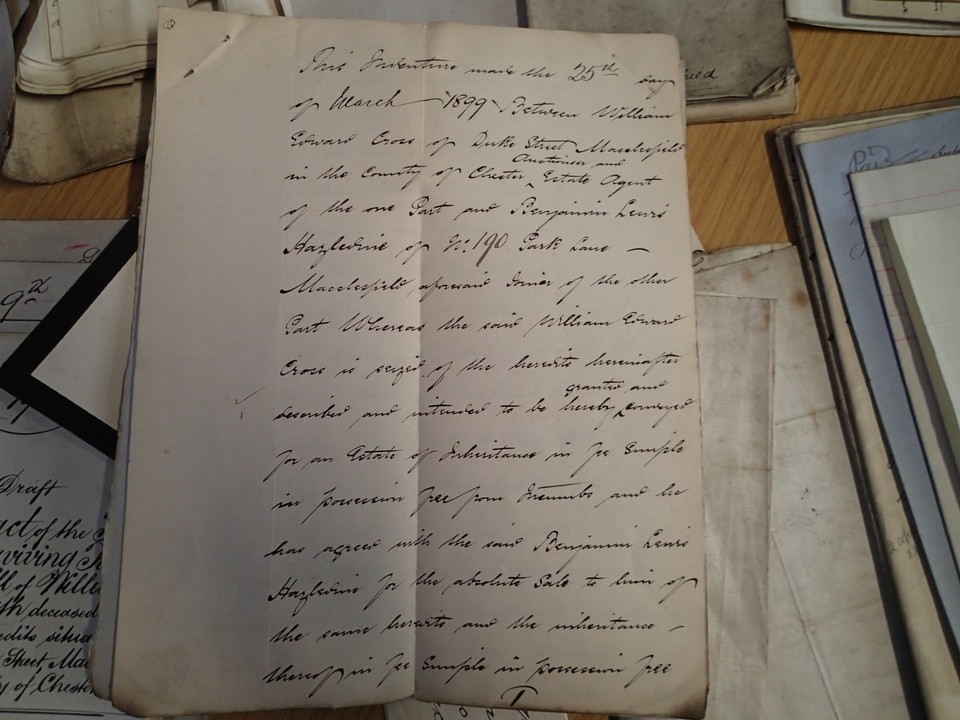 This Indenture made the 25th day
of March 1899 Between William
Edward Cross of Duke Street Macclesfield
in the County of Chester ^ Auctioneer and Estate Agent
of the one Part and Benjamin Lewis
Hazledine of No. 190 Park Lane —
Macclesfield aforesaid Joiner of the other
Part Whereas the said William Edward
Cross is seized of the heredits hereinafter
described and intended to be hereby ^ granted and conveyed
for an Estate of Inheritance in fee simple
in possession free from Incumbs and he
has agreed with the said Benjamin Lewis
Hazledine for the absolute Sale to him of
the same heredits and the inheritance —
thereof in fee simple in possession free
1
9th
Draft
act of the
viving
ll of Willi
th deceased
edits situa
Street, Mac
y of Chester